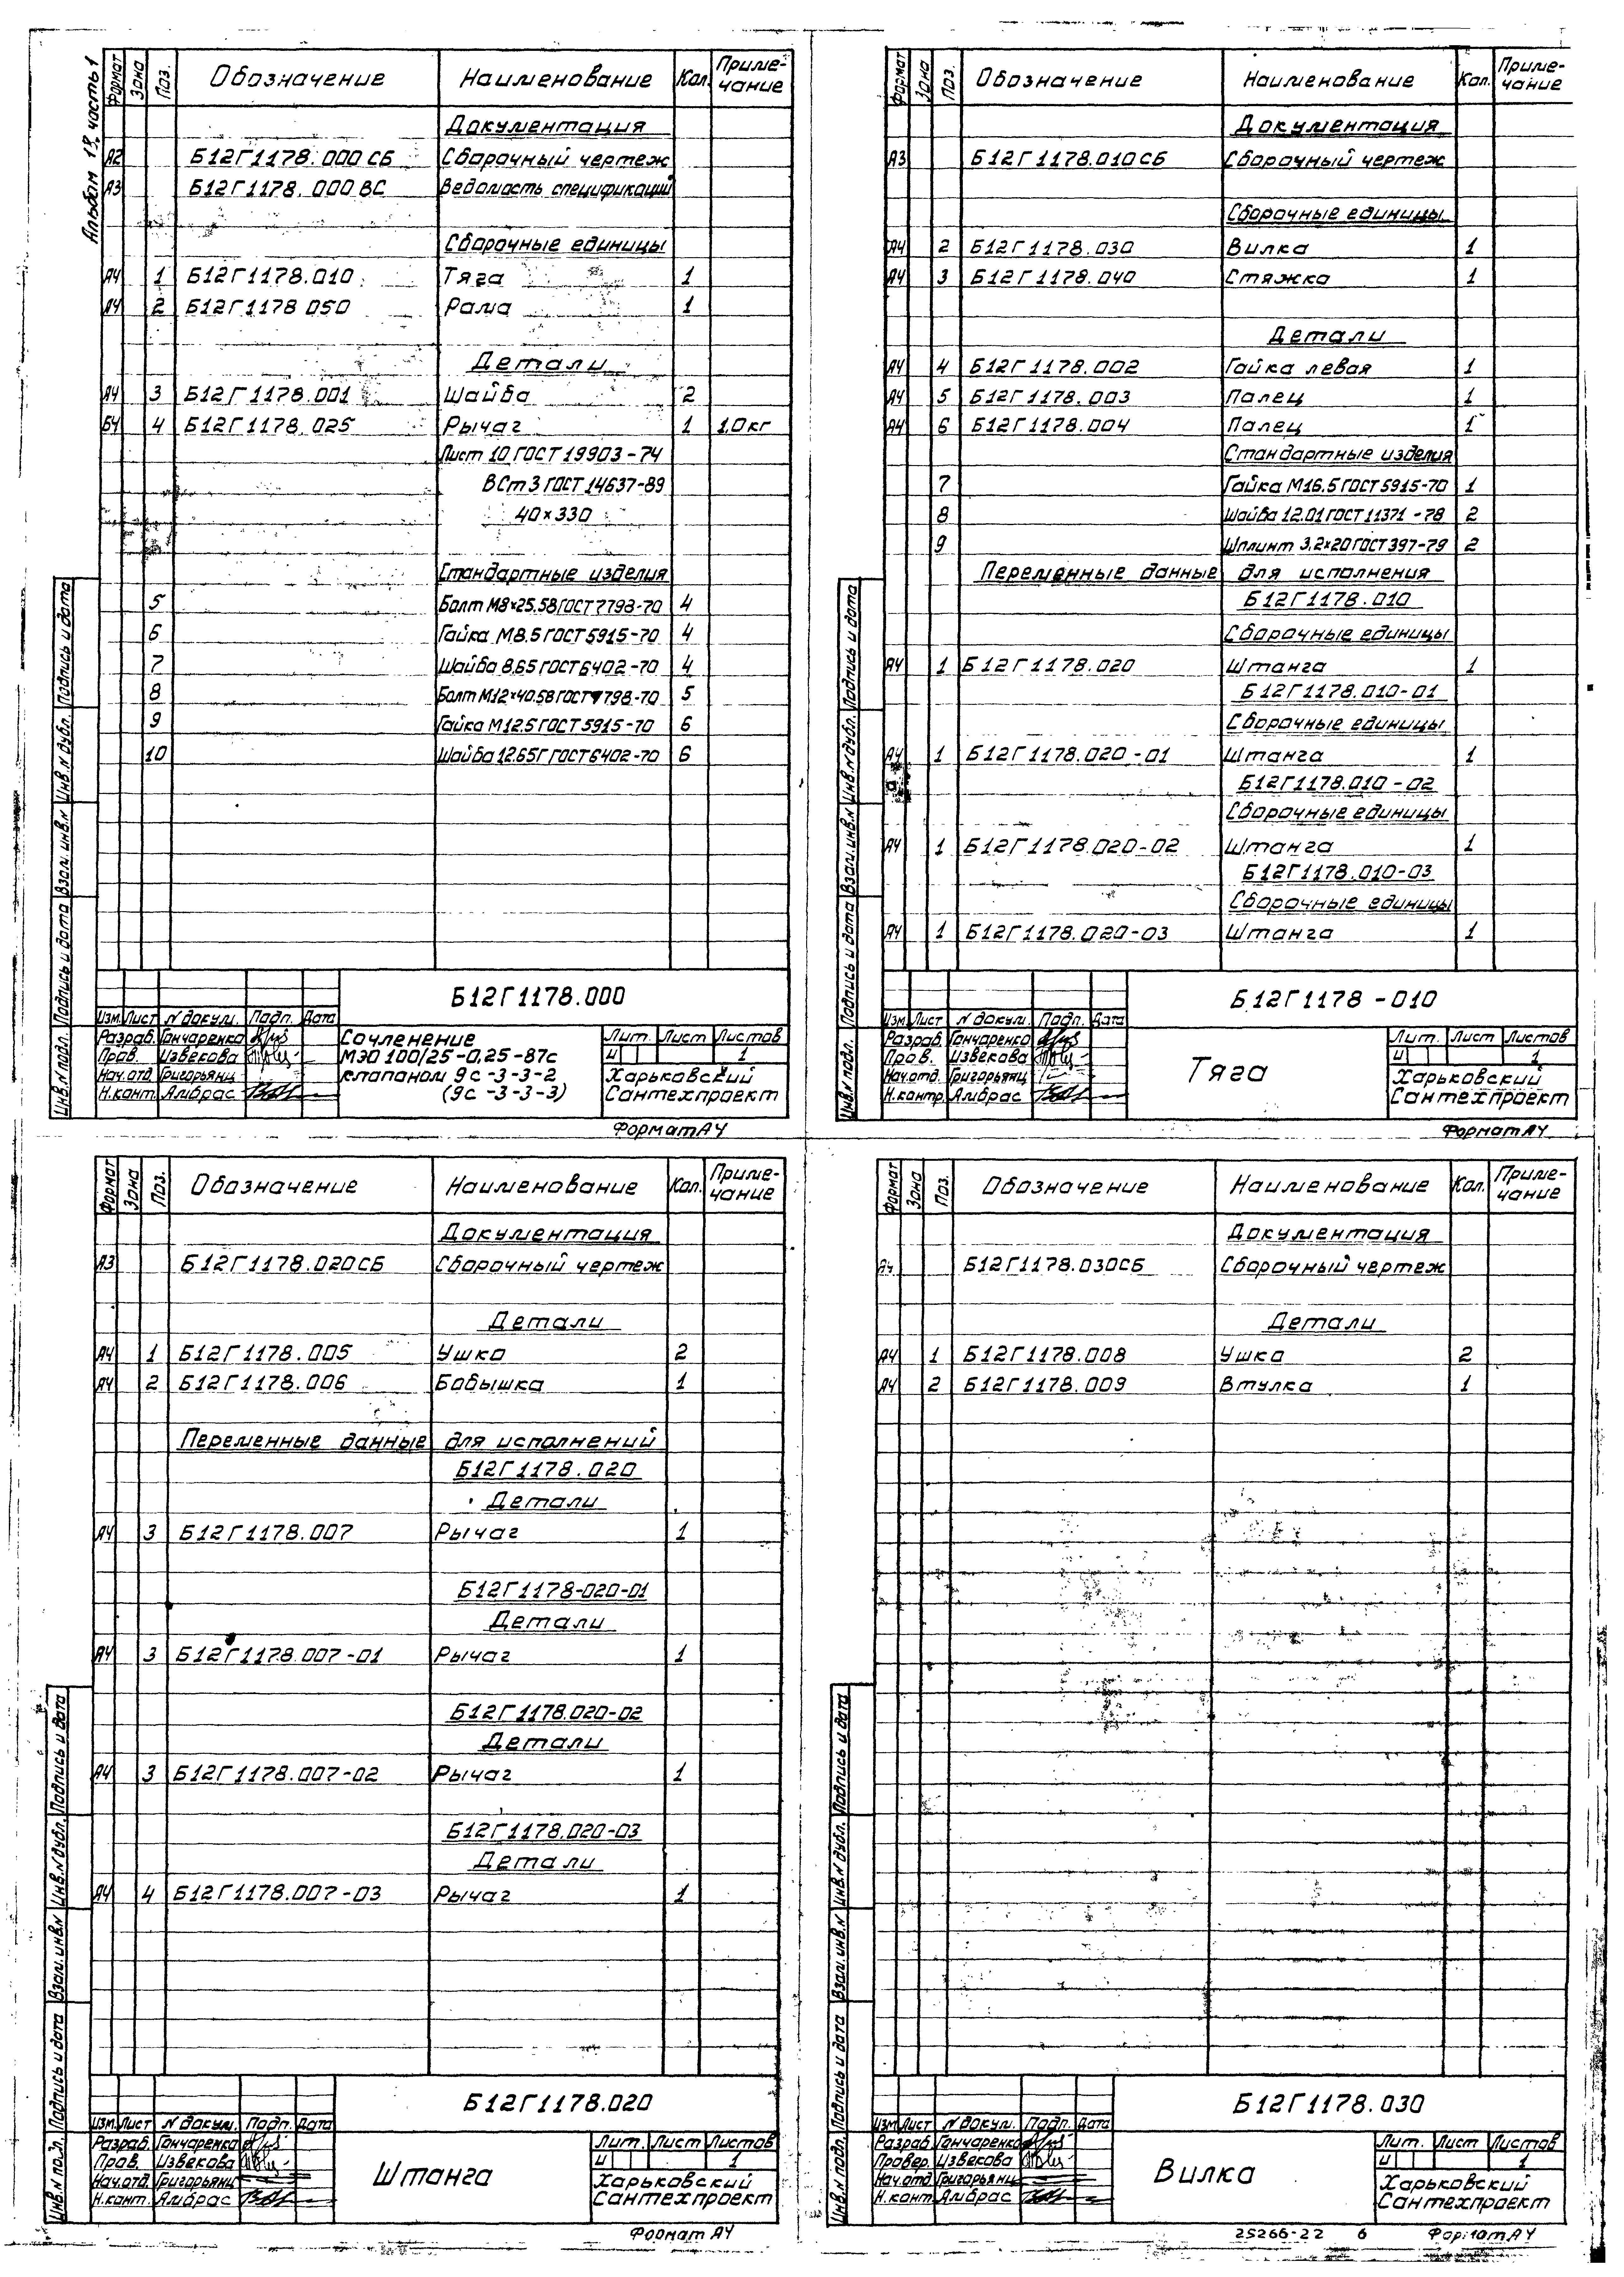 Альбом 13, часть 1
Формат Зона Поз. Обозначение Наименование Кол. Приме-
чание
Документация
А2 Б12Г1178.000 СБ Сборочный чертеж
А3 Б12Г1178.000 ВС Ведомость спецификаций
Сборочные единицы
А4 1 Б12Г1178.010 Тяга 1
А4 2 Б12Г1178 050 Рама 1
Детали
А4 3 Б12Г1178.001 Шайба 2
БЧ 4 Б12Г1178.025 Рычаг 1 1,0 кг
Лист 10 ГОСТ 19903-74
ВСт3 ГОСТ 14637-89
40×330
Стандартные изделия
5 Болт М8×25.58 ГОСТ 7798-70 4
6 Гайка М8.5 ГОСТ 5915-70 4
7 Шайба 8.65 ГОСТ 6402-70 4
8 Болт М12×40.58 ГОСТ 7798-70 5
9 Гайка М12.5 ГОСТ 5915-70 6
10 Шайба 12.65Г ГОСТ 6402-70 6
Инв.N подл. Подпись и дата Взам. инв.N Инв.N дубл. Подпись и дата
Б12Г1178.000
Изм. Лист N докум. Подп. Дата
Разраб. Гончаренко
Пров. Извекова
Нач.отд. Григорьянц
Н.конт. Амбрас
Сочленение
МЭО 100/25-0,25-87с
клапаном 9с-3-3-2
(9с-3-3-3)
Лит. Лист Листов
И 1
Харьковский
Сантехпроект
Формат А4
Формат Зона Поз. Обозначение Наименование Кол. Приме-
чание
Документация
А3 Б12Г1178.010 СБ Сборочный чертеж
Сборочные единицы
А4 2 Б12Г1178.030 Вилка 1
А4 3 Б12Г1178.040 Стяжка 1
Детали
А4 4 Б12Г1178.002 Гайка левая 1
А4 5 Б12Г1178.003 Палец 1
А4 6 Б12Г1178.004 Палец 1
Стандартные изделия
7 Гайка М16.5 ГОСТ 5915-70 1
8 Шайба 12.01 ГОСТ 11371-78 2
9 Шплинт 3,2×20 ГОСТ 397-79 2
Переменные данные для исполнения
Б12Г1178.010
Сборочные единицы
А4 1 Б12Г1178.020 Штанга 1
Б12Г1178.010-01
Сборочные единицы
А4 1 Б12Г1178.020-01 Штанга 1
Б12Г1178.010-02
Сборочные единицы
А4 1 Б12Г1178.020-02 Штанга 1
Б12Г1178.010-03
Сборочные единицы
А4 1 Б12Г1178.020-03 Штанга 1
Инв.N подл. Подпись и дата Взам. инв.N Инв.N дубл. Подпись и дата
Б12Г1178-010
Изм. Лист N докум. Подп. Дата
Разраб. Гончаренко
Пров. Извекова
Нач.отд. Григорьянц
Н.контр. Амбрас
Тяга
Лит. Лист Листов
И 1
Харьковский
Сантехпроект
Формат А4
Формат Зона Поз. Обозначение Наименование Кол. Приме-
чание
Документация
А3 Б12Г1178.020СБ Сборочный чертеж
Детали
А4 1 Б12Г1178.005 Ушко 2
А4 2 Б12Г1178.006 Бобышка 1
Переменные данные для исполнений
Б12Г1178.020
Детали
А4 3 Б12Г1178.007 Рычаг 1
Б12Г1178-020-01
Детали
А4 3 Б12Г1178.007-01 Рычаг 1
Б12Г1178.020-02
Детали
А4 3 Б12Г1178.007-02 Рычаг 1
Б12Г1178.020-03
Детали
А4 4 Б12Г1178.007-03 Рычаг 1
Инв.N подл. Подпись и дата Взам. инв.N Инв.N дубл. Подпись и дата
Б12Г1178.020
Изм. Лист N докум. Подп. Дата
Разраб. Гончаренко
Пров. Извекова
Нач.отд. Григорьянц
Н.конт. Амбрас
Штанга
Лит. Лист Листов
И 1
Харьковский
Сантехпроект
Формат А4
Формат Зона Поз. Обозначение Наименование Кол. Приме-
чание
Документация
А4 Б12Г1178.030СБ Сборочный чертеж
Детали
А4 1 Б12Г1178.008 Ушко 2
А4 2 Б12Г1178.009 Втулка 1
Инв.N подл. Подпись и дата Взам. инв.N Инв.N дубл. Подпись и дата
Б12Г1178.030
Изм. Лист N докум. Подп. Дата
Разраб. Гончаренко
Провер. Извекова
Нач.отд Григорьянц
Н.конт. Амбрас
Вилка
Лит. Лист Листов
И 1
Харьковский
Сантехпроект
25266-22 6 Формат А4